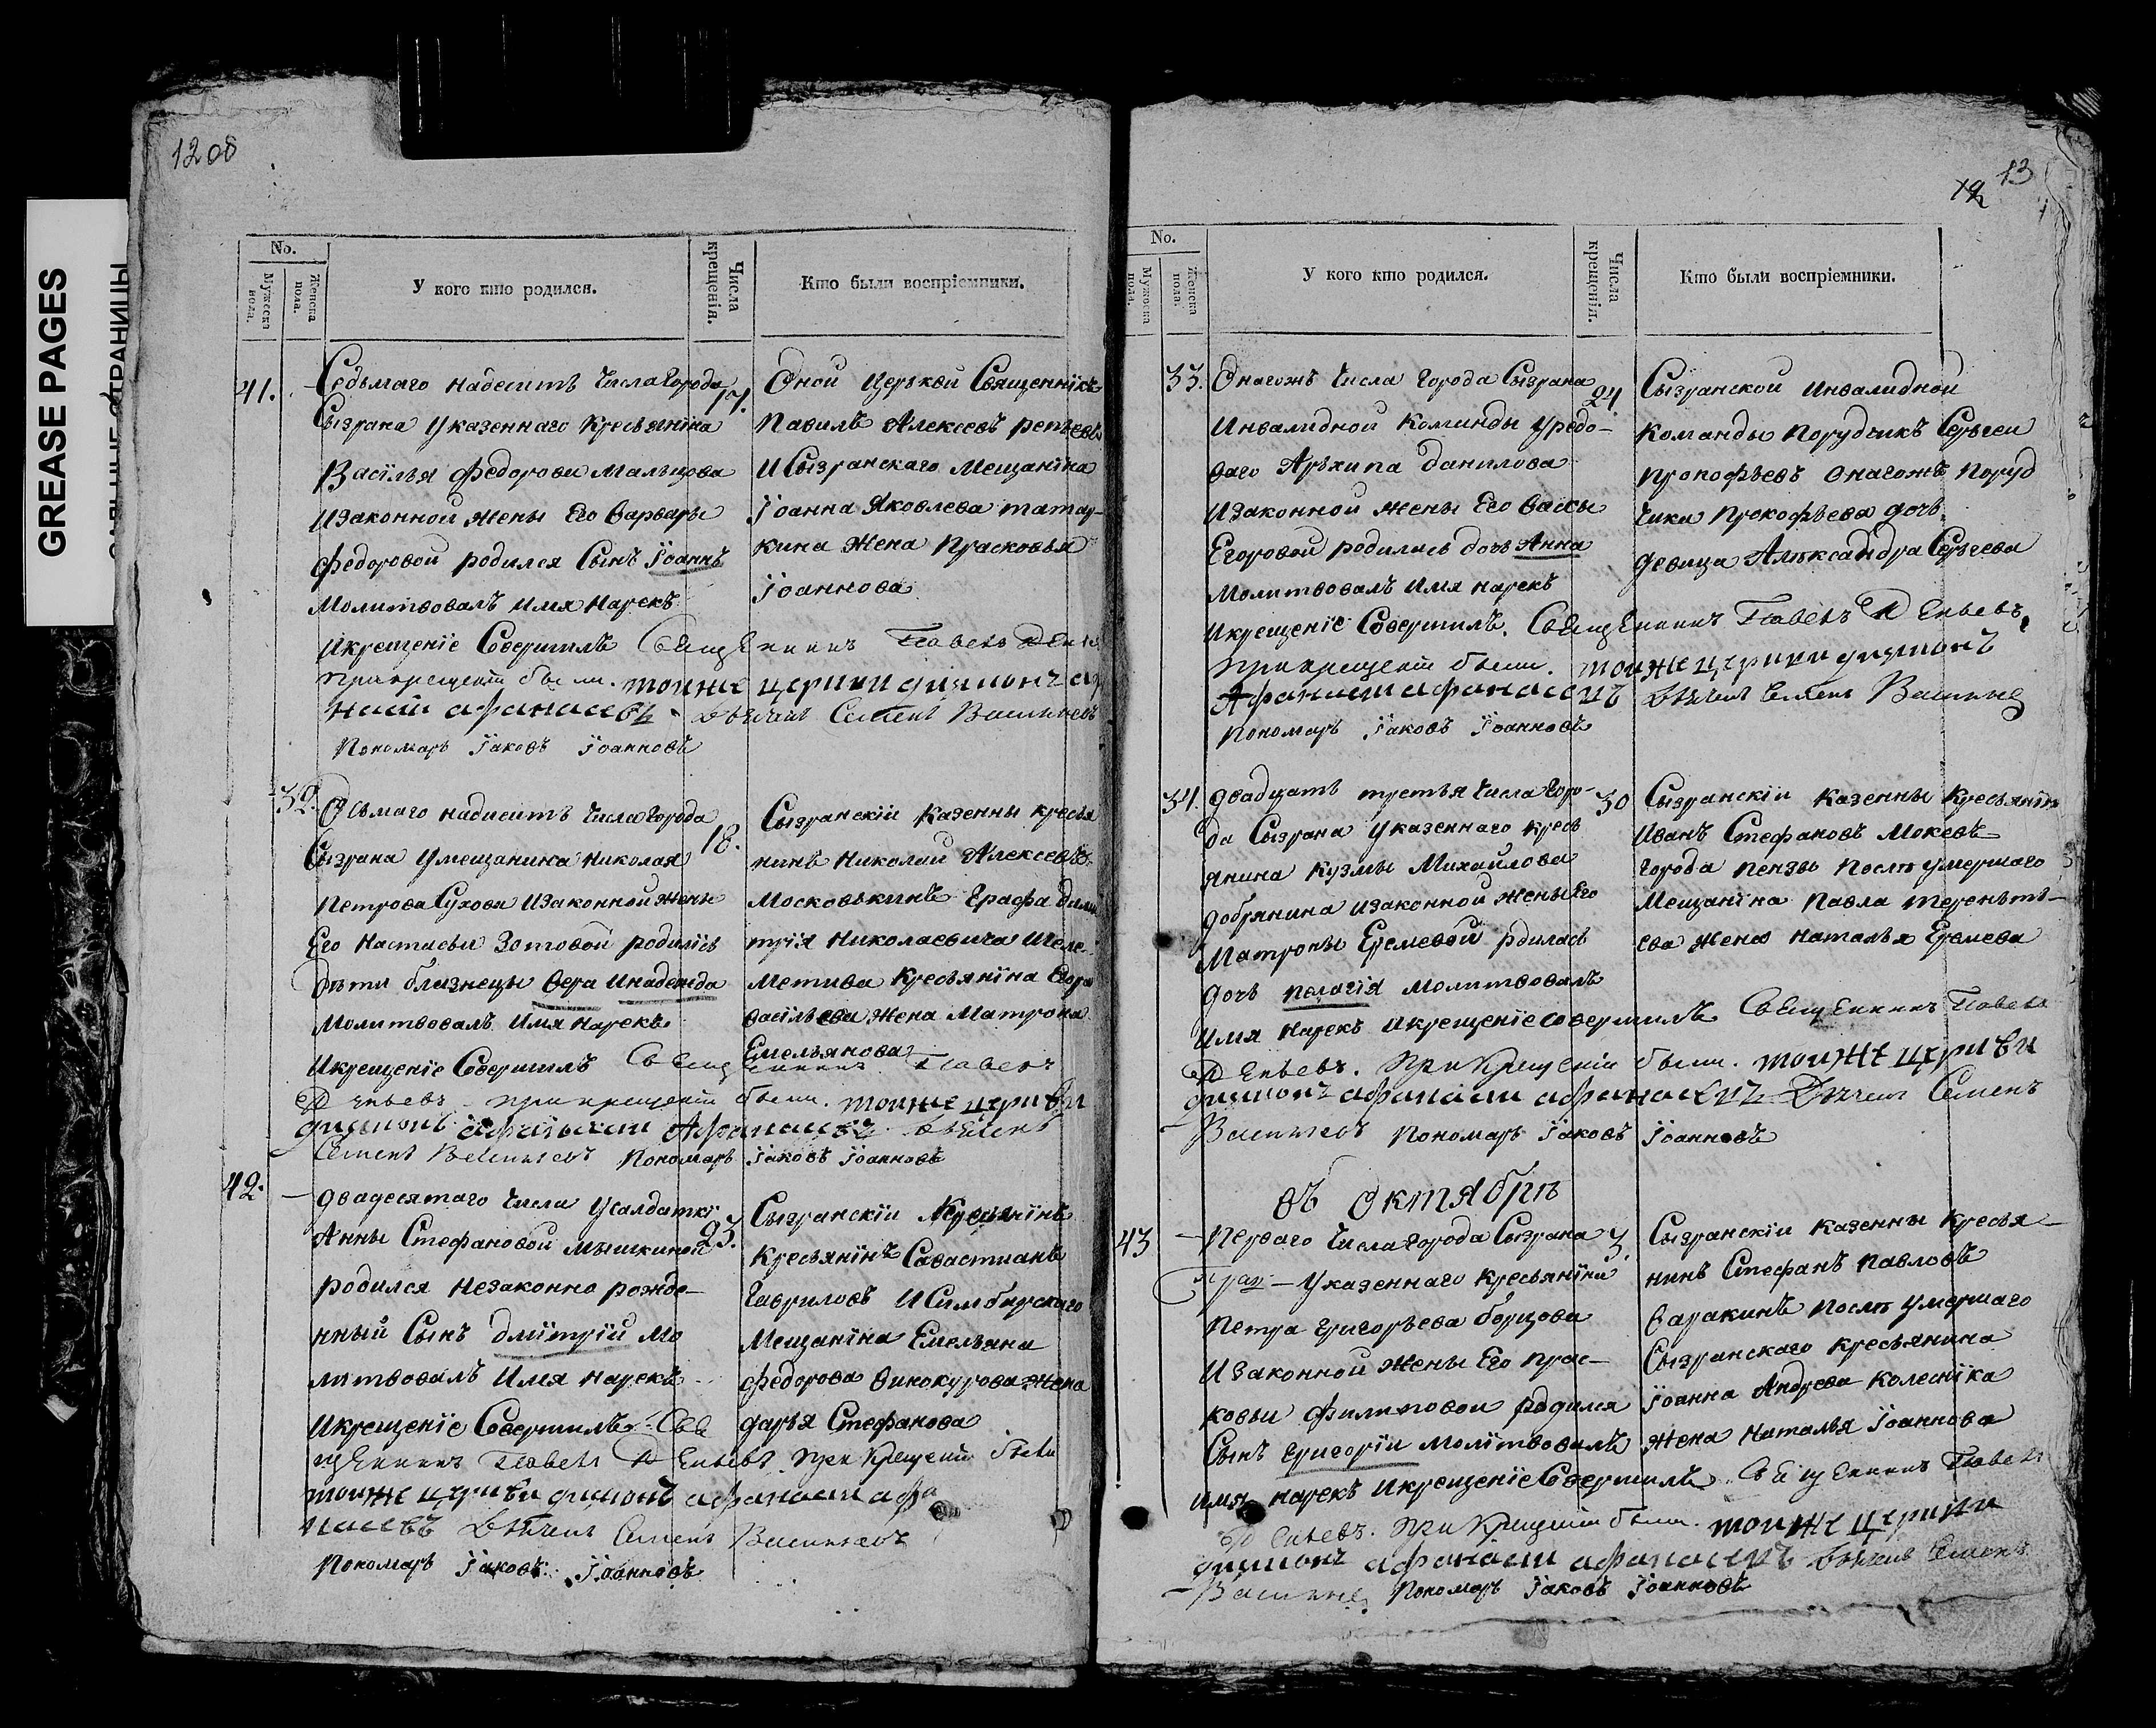 GREASE PAGES
1208
No.
Мужеска пола.
Женска пола.
У кого кто родился.
Числа крещенія.
Кто были воспріемники.
41.
Седьмаго надесить числа Города
Сызрана Указеннаго Кресьянина
Васілья Федорова Мальцова
Изаконной жены Его Варвары
Федоровой родился Сынъ Іоаннъ
Молитвовалъ Имя Нарекъ
Икрещеніе Совершилъ Священникъ Павелъ
При крещеніи были. тойже церкви
Афанасьевъ. Дьячекъ Семенъ Васильевъ
Пономарь Іаковъ Іоанновъ
17.
Оной Церькви Священникъ
Павилъ Алексеевъ
И Сызранскаго Мещаніна
Іоанна Яковлева татар-
кина Жена Прасковья
Іоаннова
32.
Осьмаго надисить Числа Города
Сызрана Умещанина Николая
Петрова Сухова Изаконной жены
Его Настасьи Зотовой родились
Дети близнецы Вера Инадежда
Молитвовалъ Имя Нарекъ
Икрещеніе Совершилъ Священникъ Павелъ
при крещеніи были. тойже церкви
Афанасьевъ
Семенъ Васильевъ Пономарь Іаковъ Іоанновъ
18.
Сызранскіи Казенны кресья
нинъ Николай Алексеевъ
Московькинъ Графа Дими
трія Николаевича Шеле-
Метива Кресьяніна Егора
Васільева Жена Матрона
Емельянова
42.
Двадесятаго Числа Усалдатки
Анны Стефановой Мышкиной
родился Незаконно рожде-
нный Сынъ Дмітрій Мо
литвовалъ Имя Нарекъ
Икрещеніе Совершилъ Свя
щенникъ Павелъ при Крещеніи были
тойже церкви диаконъ афанасіи афа
насьевъ Дьячекъ Семенъ Васильевъ
Пономарь Іаковъ Іоанновъ
23.
Сызранскіи
Кресьянінъ Савастианъ
Гавриловъ И Симбирскаго
Мещаніна Емельяна
Федорова Винокурова Жена
Дарья Стефанова
13
12
No.
Мужеска пола.
Женска пола.
У кого кто родился.
Числа крещенія.
Кто были воспріемники.
33.
Онагожъ Числа Города Сызрана
Инвалидной Команды Урядо-
ваго Архипа Данилова
Изаконной жены Его Вассы
Егоровой родилась дочь Анна
Молитвовалъ Имя Нарекъ
Икрещеніе Совершилъ. Священникъ Павелъ
При крещеніи были. тойже церкви диаконъ
Афанасіи афанасьевъ Дьячекъ Семенъ Василье
Пономарь Іаковъ Іоанновъ
24
Сызранской Инвалидной
Команды Порудчикъ Серьгеи
Прокофьевъ Онагожъ Поруд
чика Прокофьева дочь
девица Александра Серьгева
34.
Двадцать третья Числа Горо-
да Сызрана Указеннаго Кресь
янина Кузмы Михайлова
Добрянина изаконной Жены Его
Матроны Еремевой рдилась
Дочь Пелагія Молитвовалъ
Имя Нарекъ Икрещеніе совершилъ Священникъ Павелъ
При Крещеніи были. тойже церкви
диаконъ афанасіи афанасьевъ Дьячекъ Семенъ
Васильевъ Пономарь Іаковъ Іоанновъ
30
Сызранскіи Казенны Кресьянінъ
Иванъ Стефановъ Мокевъ
Города Пензы Послѣ умершаго
Мещаніна Павла Тереньть-
ева жена Наталья Еремева
Въ Октябрѣ
43
Перваго Числа Города Сызрана
Указеннаго Кресьяніна
Петра Григорьева Борцова
Изаконной Жены Его Прас-
ковьи Филиповои родился
Сынъ Григоріи Молітвовалъ
Имя Нарекъ Икрещеніе Совершилъ Священникъ Павелъ
При Крещеніи были. тойже церкви
диаконъ афанасіи афанасьевъ Дьячекъ Семенъ
Василье Пономарь Іаковъ Іоанновъ
3.
Сызранскіи Казенны Кресья-
нинъ Стефанъ Павловъ
Варакинъ Послѣ умершаго
Сызранскаго Кресьянина
Іоанна Андрева Колесніка
Жена Наталья Іоаннова